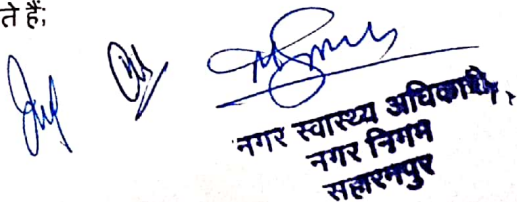 ते हैं;
नगर स्वास्थ्य अधिकारी
नगर निगम
सहारनपुर